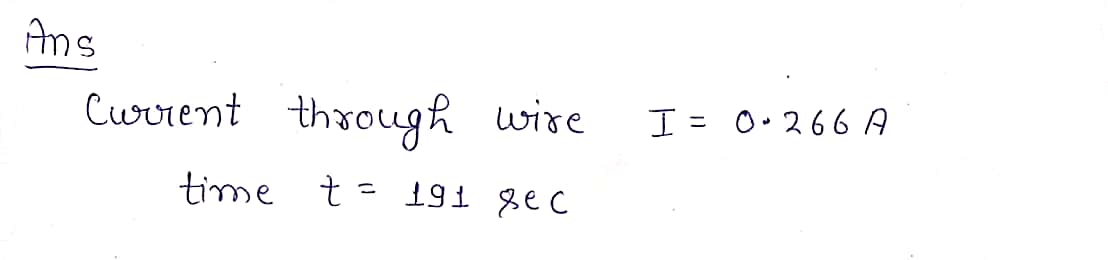 Ans
Current through wire I = 0.266 A
time t = 191 sec